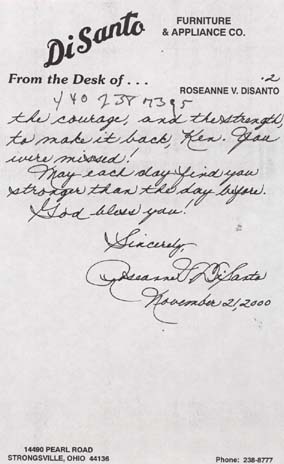 DiSanto
FURNITURE
& APPLIANCE CO.
From the Desk of . . .
.2
ROSEANNE V. DISANTO
440 238 7395
the courage, and the strength,
to make it back, Ken. You
were missed!
May each day find you
stronger than the day before.
God bless you!
Sincerely,
Roseanne V. DiSanto
November 21, 2000
14490 PEARL ROAD
STRONGSVILLE, OHIO 44136
Phone: 238-8777